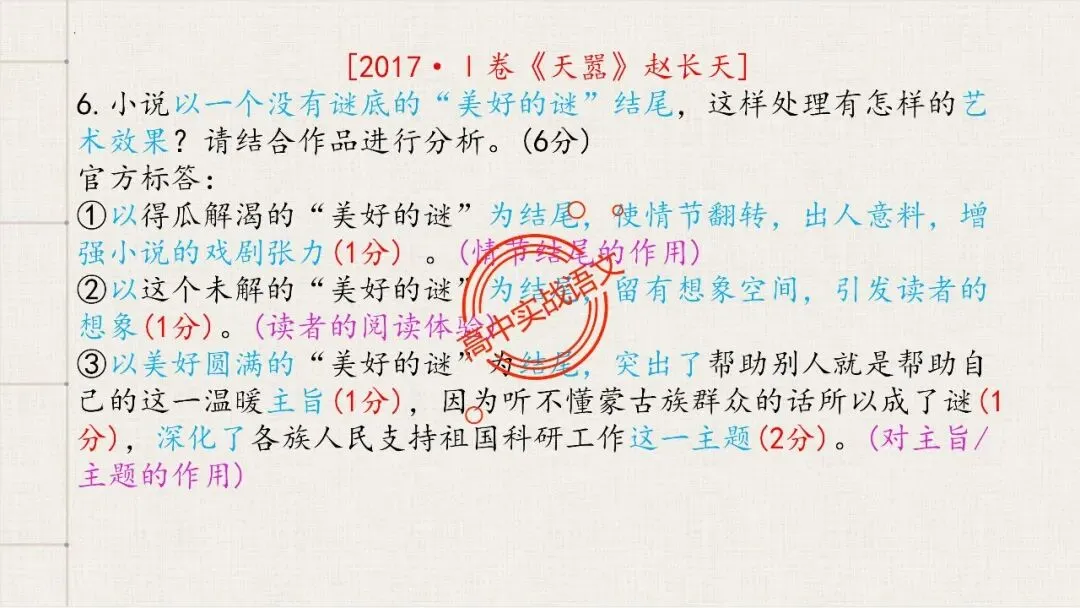 [2017·Ⅰ卷《天嚣》赵长天]
6.小说以一个没有谜底的“美好的谜”结尾，这样处理有怎样的艺
术效果？请结合作品进行分析。(6分)
官方标答：
①以得瓜解渴的“美好的谜”为结尾，使情节翻转，出人意料，增
强小说的戏剧张力(1分) 。(情节结尾的作用)
②以这个未解的“美好的谜”为结尾，留有想象空间，引发读者的
想象(1分)。(读者的阅读体验)
③以美好圆满的“美好的谜”为结尾，突出了帮助别人就是帮助自
己的这一温暖主旨(1分)，因为听不懂蒙古族群众的话所以成了谜(1
分)，深化了各族人民支持祖国科研工作这一主题(2分)。(对主旨/
主题的作用)
高中实战语文